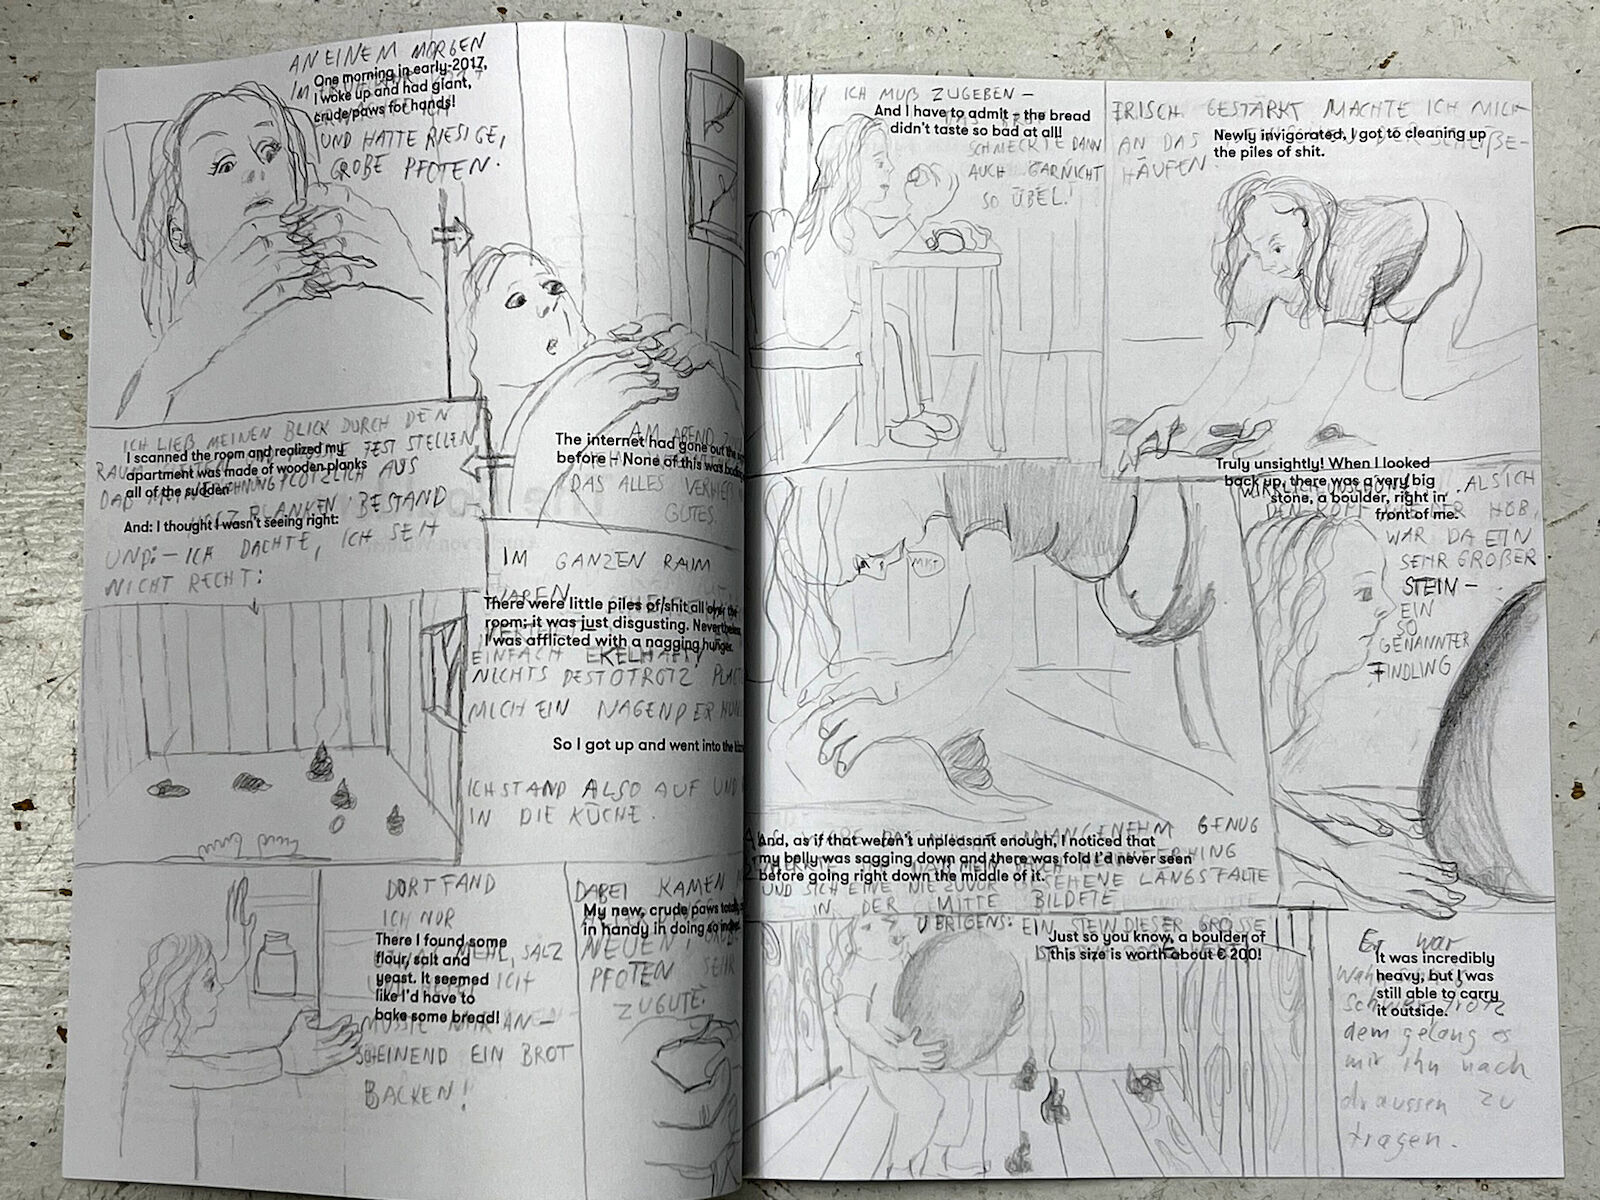 AN EINEM MORGEN
One morning in early-2017,
I woke up and had giant,
crude paws for hands!
UND HATTE RIESIGE,
GROBE PFOTEN.
ICH LIEß MEINEN BLICK DURCH DEN
FEST STELLEN
I scanned the room and realized my
apartment was made of wooden planks
all of the sudden
PLÖTZLICH AUS
PLANKEN BESTAND
And: I thought I wasn't seeing right:
UND: – ICH DACHTE, ICH SEH
NICHT RECHT:
AM ABEND
The internet had gone out the
before – None of this was
DAS ALLES VERHIEß
GUTES
IM GANZEN RAUM
WAREN
There were little piles of shit all over the
room; it was just disgusting. Nevertheless
I was afflicted with a nagging hunger.
EINFACH EKELHAFT,
NICHTS DESTOTROTZ
MICH EIN NAGENDER
So I got up and went into the
ICH STAND ALSO AUF UND
IN DIE KÜCHE.
DORT FAND
ICH NUR
MEHL, SALZ
There I found some
flour, salt and
yeast. It seemed
like I'd have to
bake some bread!
MUSSTE MIR AN–
SCHEINEND EIN BROT
BACKEN!
DABEI KAMEN
My new, crude paws
in handy in doing so
NEUEN,
PFOTEN SEHR
ZUGUTE.
ICH MUß ZUGEBEN –
And I have to admit – the bread
didn't taste so bad at all!
SCHMECKTE DANN
AUCH GARNICHT
SO ÜBEL!
FRISCH GESTÄRKT MACHTE ICH MICH
AN DAS
Newly invigorated, I got to cleaning up
the piles of shit.
HÄUFEN
Truly unsightly! When I looked
back up, there was a very big
stone, a boulder, right in
front of me.
ALS ICH
DEN KOPF WIEDER HOB,
WAR DA EIN
SEHR GROßER
STEIN –
EIN
SO
GENANNTER
FINDLING
UNANGENEHM GENUG
And, as if that weren't unpleasant enough, I noticed that
my belly was sagging down and there was fold I'd never seen
before going right down the middle of it.
HERUNTERHING
UND SICH EINE NIE ZUVOR GESEHENE LÄNGSFALTE
IN DER MITTE BILDETE
ÜBRIGENS: EIN STEIN DIESER GRÖSSE
Just so you know, a boulder of
this size is worth about € 200!
Er war
It was incredibly
heavy, but I was
still able to carry
it outside.
dem gelang es
mir ihn nach
draussen zu
tragen.